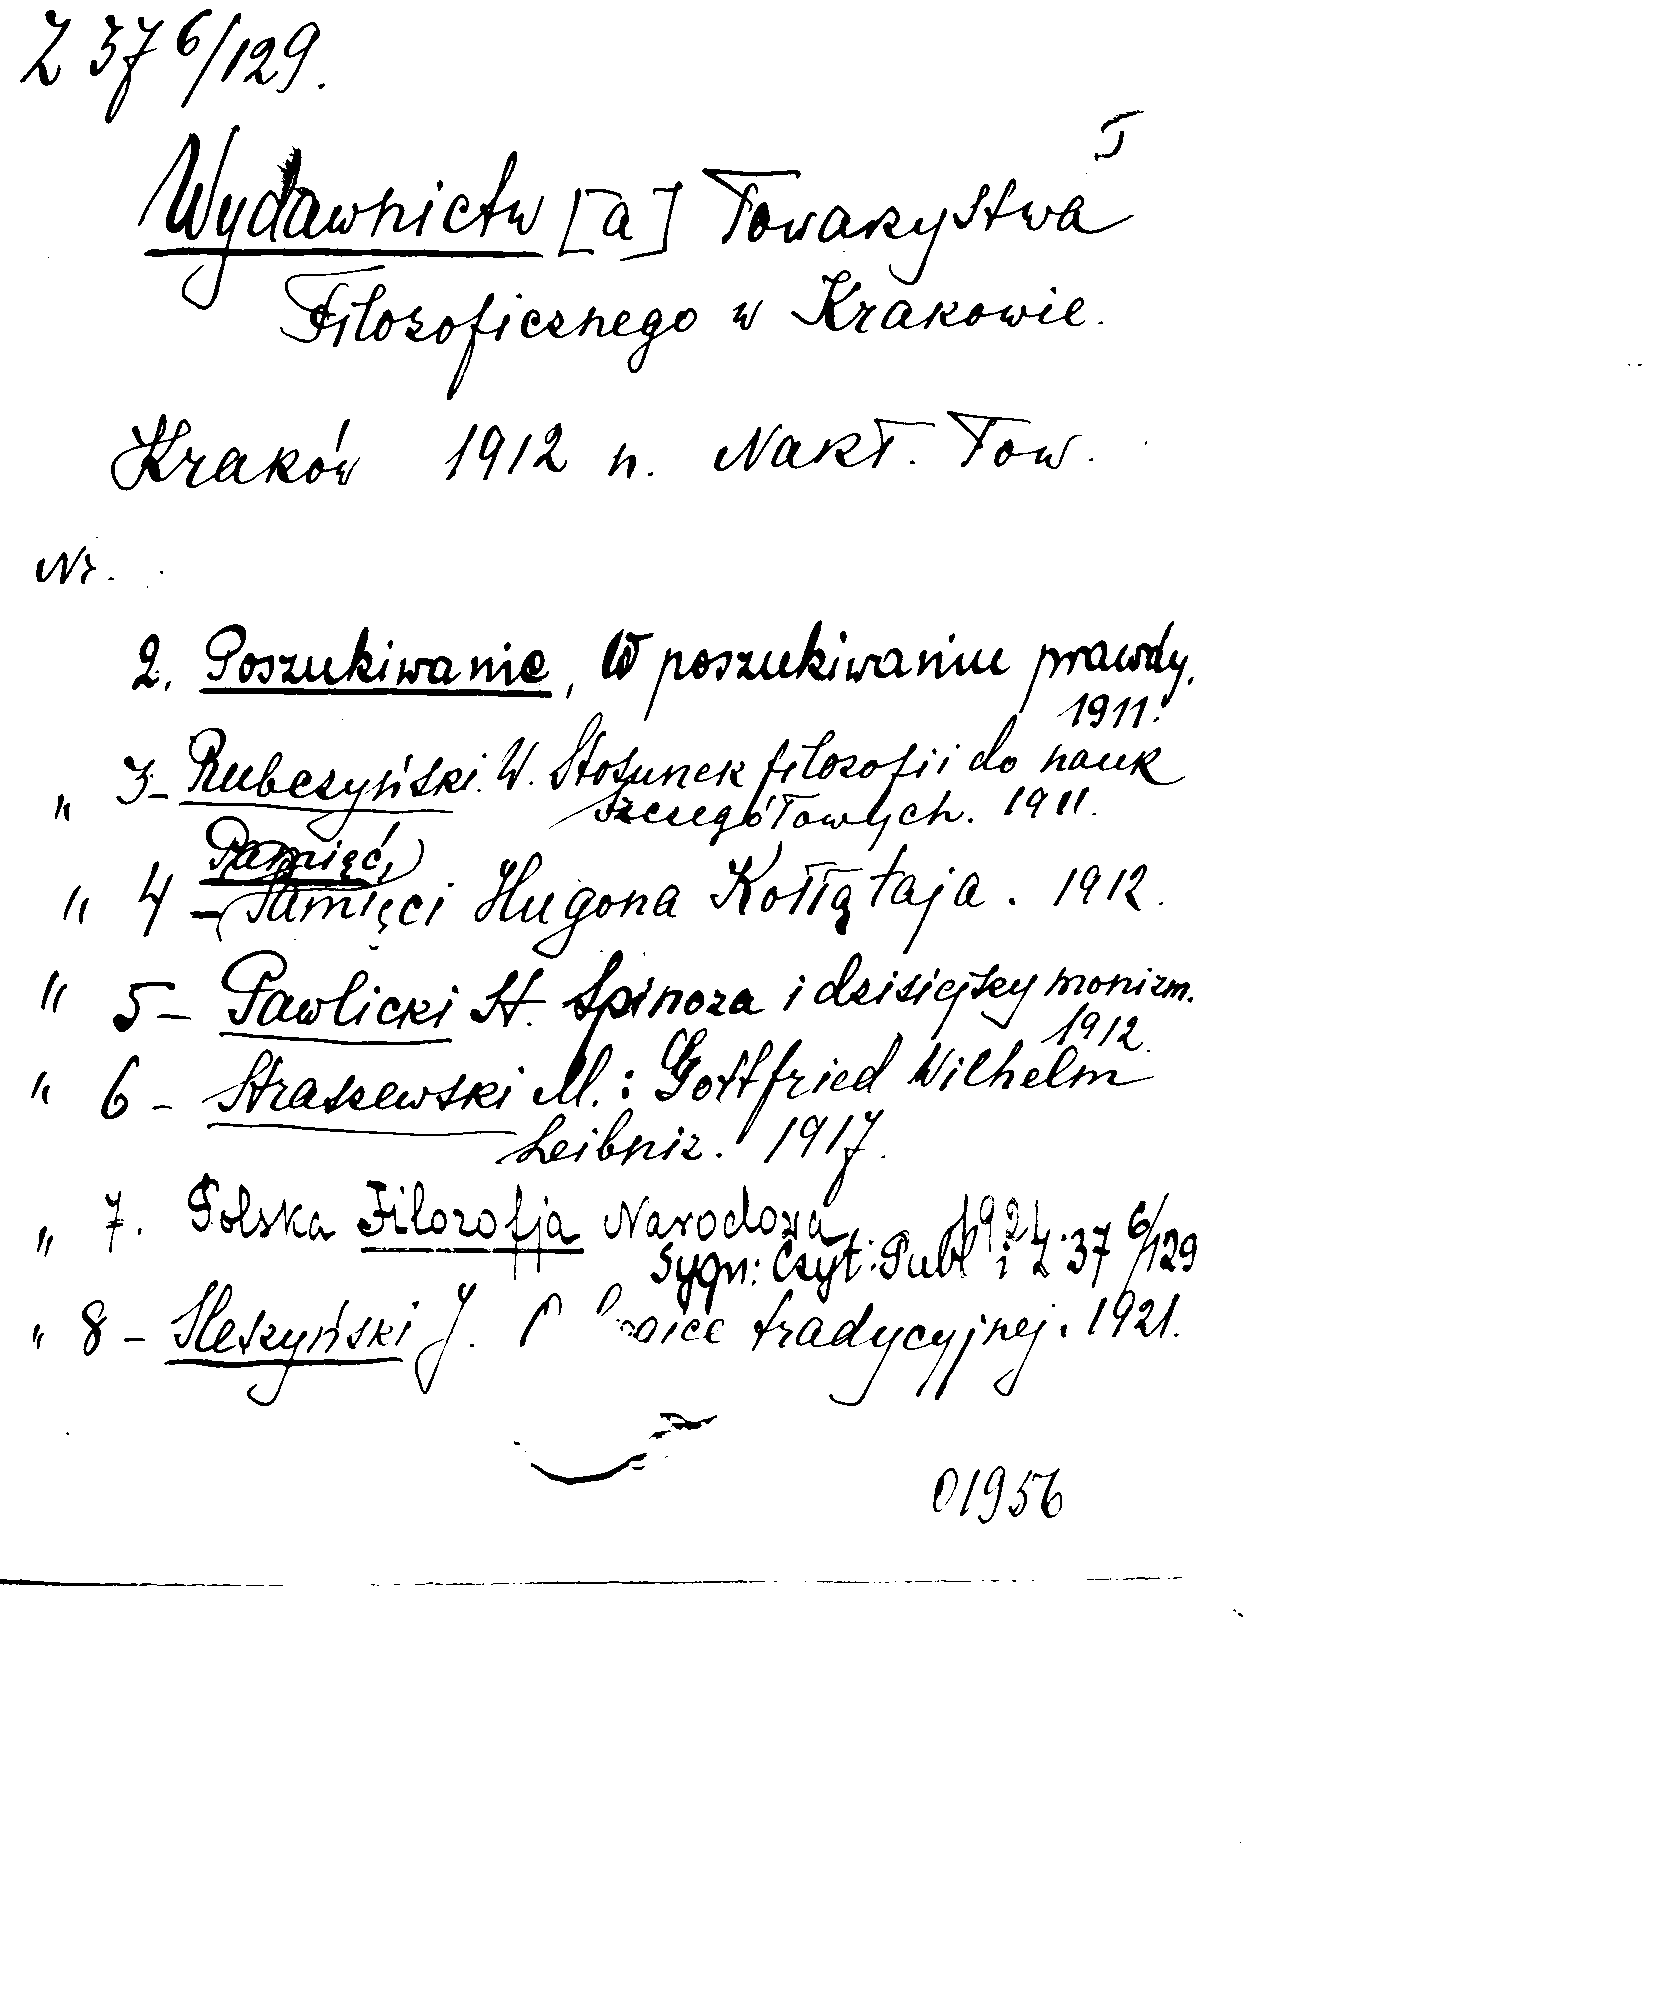 Z 37 6/129.
I
Wydawnictw [a] Towarzystwa
Filozoficznego w Krakowie.
Kraków 1912 n. Nakł. Tow.
Nr.
2. Poszukiwanie, W poszukiwaniu prawdy.
1911.
" 3- Rubczyński. W. Stosunek filozofii do nauk
szczegółowych. 1911.
Pamięć,
" 4 - Pamięci Hugona Kołłątaja. 1912.
" 5- Pawlicki St. Spinoza i dzisiejszy monizm.
1912.
" 6 - Straszewski M.: Gottfried Wilhelm
Leibniz. 1917.
" 7. Polska Filozofja Narodowa
Sygn: Czyt. Publ i Z 37 6/129
" 8 - Sleszyński J. tradycyjnej. 1921.
01956